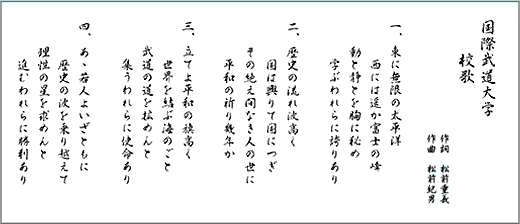 国際武道大学
校歌
作詞 松前重義
作曲 松前紀男
一、東に無限の太平洋
西には遥か富士の峰
動と静とを胸に秘め
学ぶわれらに誇りあり
二、歴史の流れ波高く
国は興りて国につぎ
その絶え間なき人の世に
平和の祈り幾年か
三、立てよ平和の旗高く
世界を結ぶ海のごと
武道の道を拡めんと
集うわれらに使命あり
四、あゝ若人よいざともに
歴史の波を乗り越えて
理性の星を求めんと
進むわれらに勝利あり